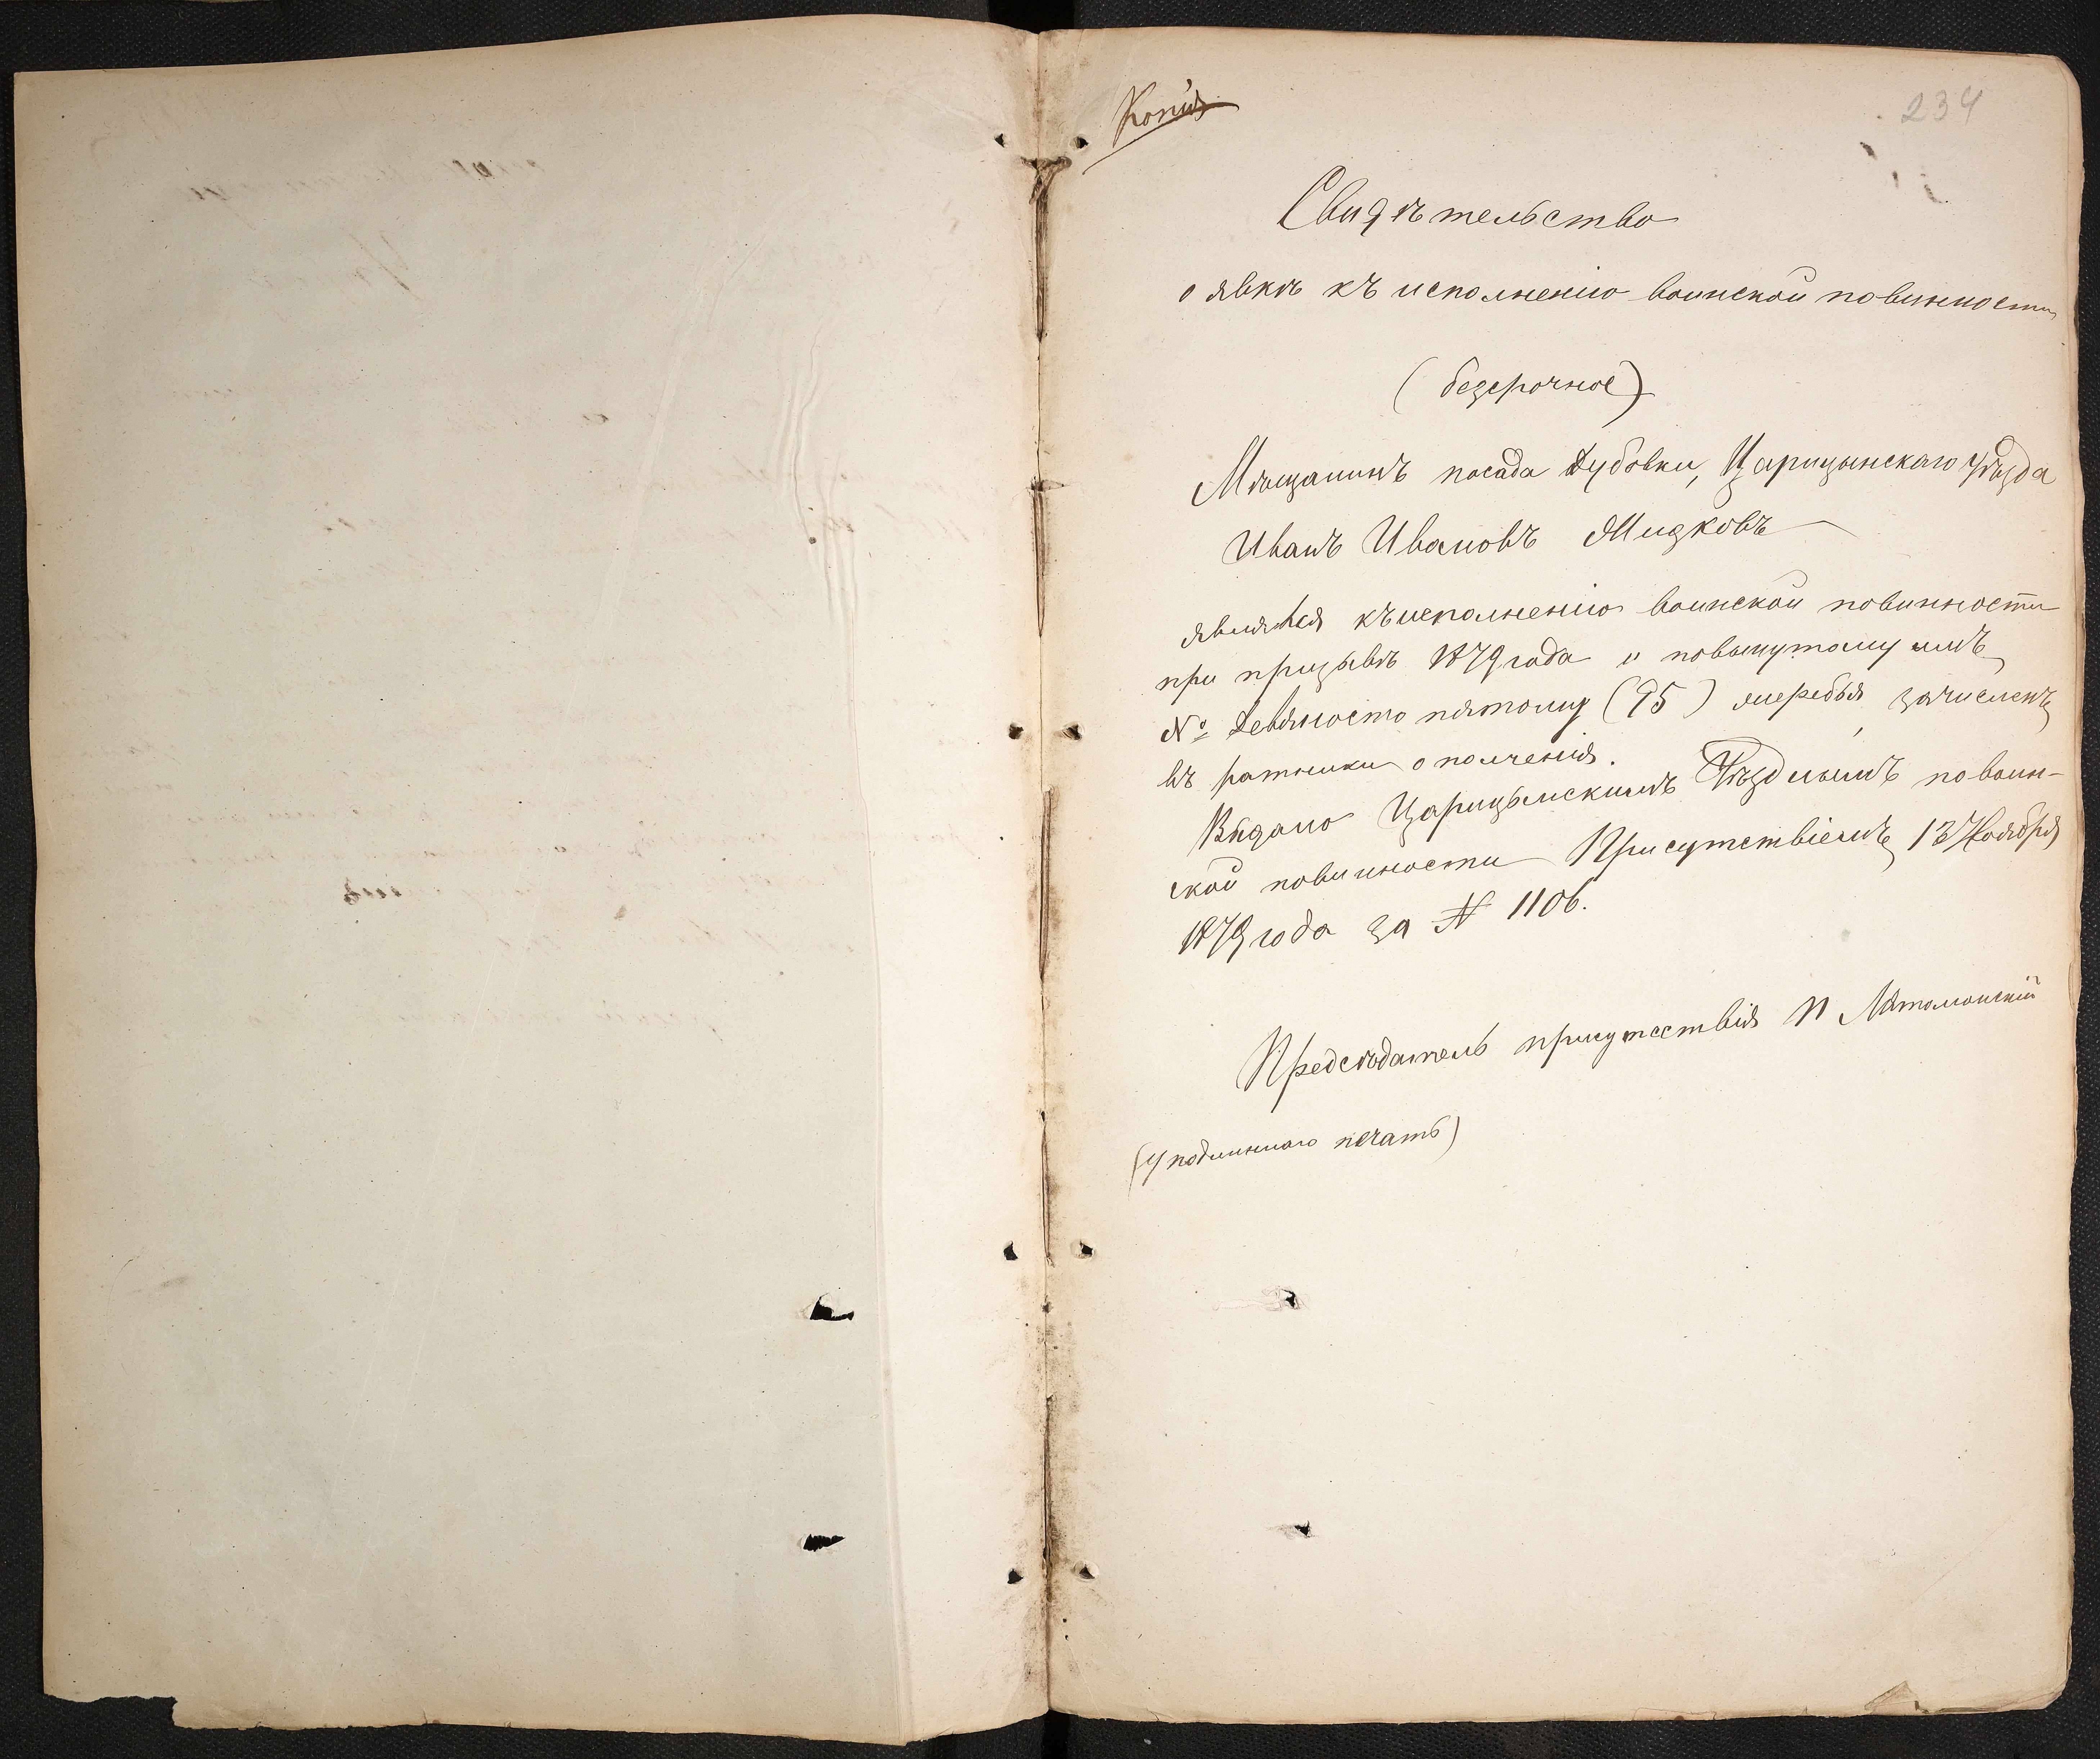 Копія
234
Свидѣтельство
о явкѣ къ исполненію воинской повинности
(безсрочное)
Мѣщанинъ посада Дубовки, Царицынскаго уѣзда
Иванъ Ивановъ Жидковъ
являлся къ исполненію воинской повинности
при призывѣ 1879 года и по вынутому имъ
№ девяносто пятому (95) жеребья зачисленъ
въ ратники ополченія.
Выдано Царицынскимъ Уѣзднымъ по воин-
ской повинности Присутствіемъ, 13 Ноября
1879 года за № 1106.
Предсѣдатель присутствія П
(у подлиннаго печать)